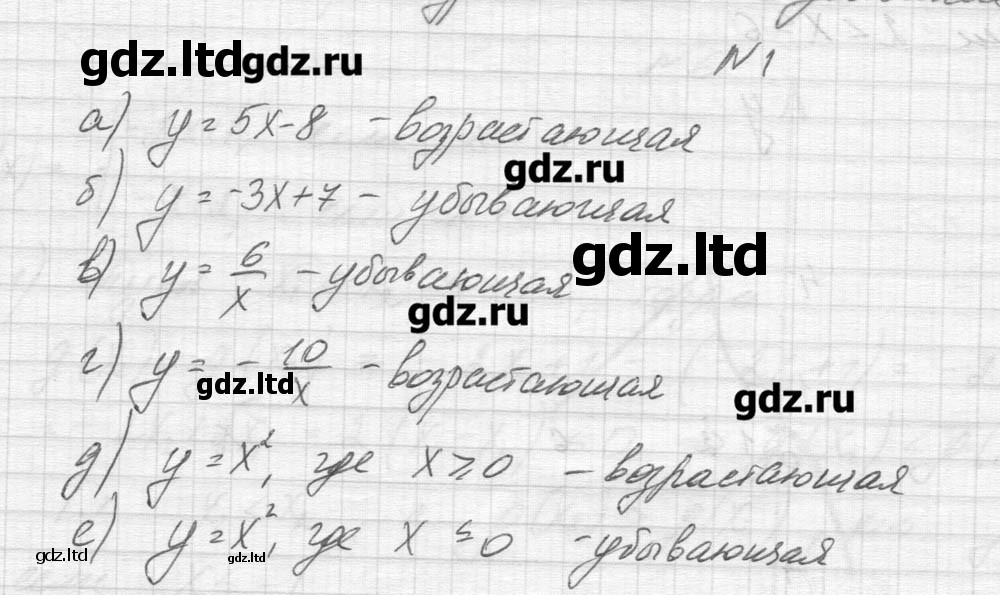 gdz.ltd gdz.ru
N 1
а) y = 5x - 8 - возрастающая
gdz.ru
б) y = -3x + 7 - убывающая
gdz.ltd
в) y = 6/x - убывающая
gdz.ru
г) y = - 10/x - возрастающая
gdz.ltd
gdz.ru
д) y = x², где x ≥ 0 - возрастающая
е) y = x², где x ≤ 0 - убывающая
gdz.ltd
gdz.ltd